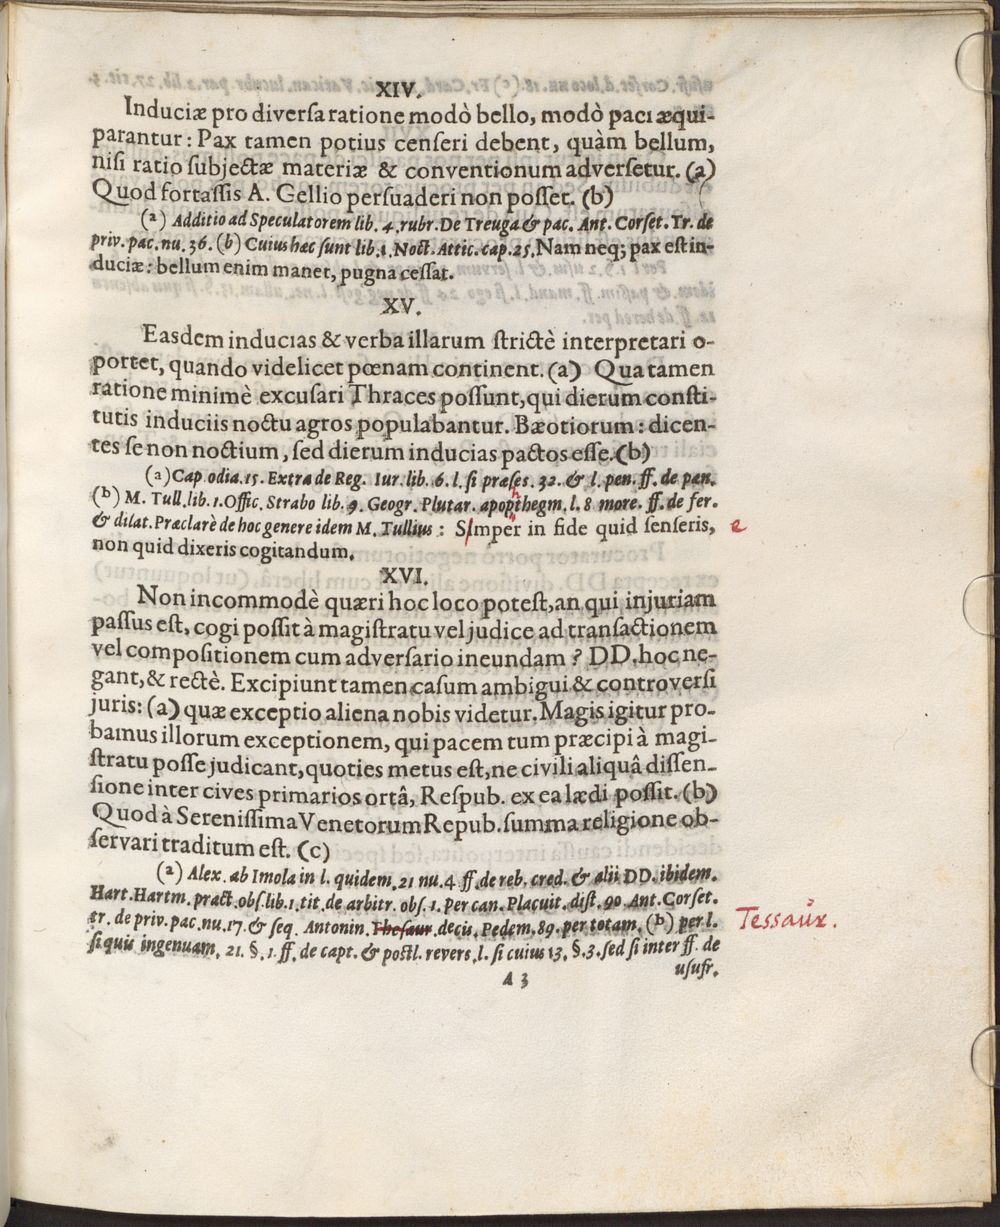 XIV.
Induciæ pro diversa ratione modò bello, modò paci æqui-
parantur: Pax tamen potius censeri debent, quàm bellum,
nisi ratio subjectæ materiæ & conventionum adversetur. (a)
Quod fortassis A. Gellio persuaderi non posset. (b)
(a) Additio ad Speculatorem lib. 4. rubr. De Treuga & pac. Ant. Corset. Tr. de
priv. pac. nu. 36. (b) Cuius hæc sunt lib. 1. Noct. Attic. cap. 25. Nam neq; pax est in-
duciæ: bellum enim manet, pugna cessat.
XV.
Easdem inducias & verba illarum strictè interpretari o-
portet, quando videlicet pœnam continent. (a) Qua tamen
ratione minimè excusari Thraces possunt, qui dierum consti-
tutis induciis noctu agros populabantur. Bæotiorum: dicen-
tes se non noctium, sed dierum inducias pactos esse. (b)
(a) Cap. odia. 15. Extra de Reg. Iur. lib. 6. l. si præses. 32. & l. pen. ff. de pœn.
(b) M. Tull. lib. 1. Offic. Strabo lib. 9. Geogr. Plutar. apopthegm. l. 8 more. ff. de fer.
& dilat. Præclarè de hoc genere idem M. Tullius: Simper in fide quid senseris, e
non quid dixeris cogitandum.
XVI.
Non incommodè quæri hoc loco potest, an qui injuriam
passus est, cogi possit à magistratu vel judice ad transactionem
vel compositionem cum adversario ineundam? DD. hoc ne-
gant, & rectè. Excipiunt tamen casum ambigui & controversi
juris: (a) quæ exceptio aliena nobis videtur. Magis igitur pro-
bamus illorum exceptionem, qui pacem tum præcipi à magi-
stratu posse judicant, quoties metus est, ne civili aliquâ dissen-
sione inter cives primarios ortâ, Respub. ex ea lædi possit. (b)
Quod à Serenissima Venetorum Repub. summa religione ob-
servari traditum est. (c)
(a) Alex. ab Imola in l. quidem. 21 nu. 4 ff. de reb. cred. & alii DD. ibidem.
Hart. Hartm. pract. obs. lib. 1. tit. de arbitr. obs. 1. per can. Placuit. dist. 90. Ant. Corset.
tr. de priv. pac. nu. 17. & seq. Antonin. Thesaur. decis. Pedem. 89. per totam. (b) per l. Tessaur.
si quis ingenuam. 21. §. 1. ff. de capt. & postl. revers. l. si cuius 13. §. 3. sed si inter ff. de
A 3 usufr.